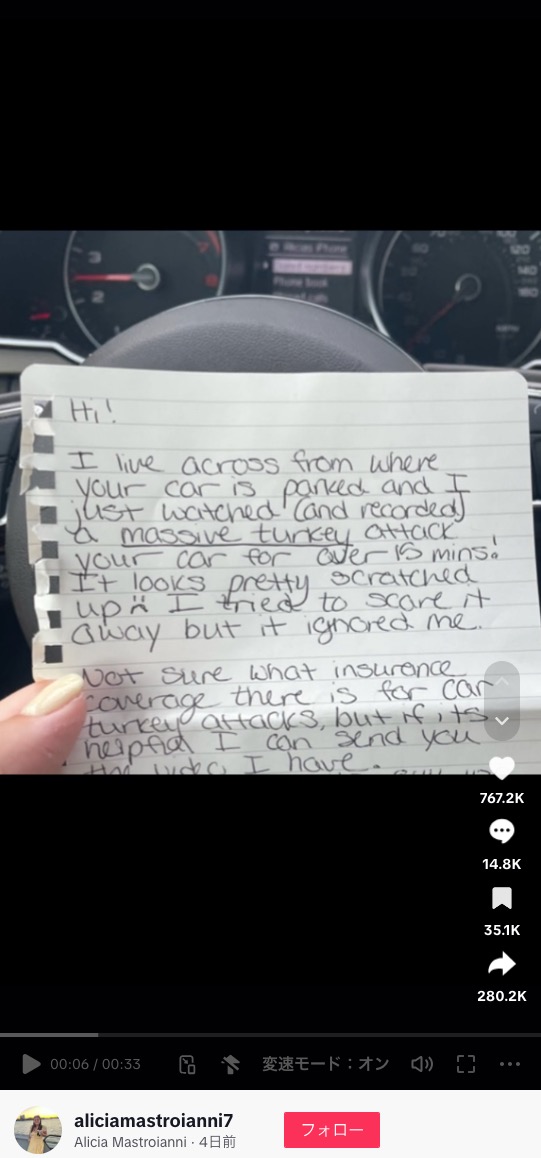 Alicias iPhone
Phone book
3
2
1
7
8
60
120
140
160
Hi!
I live across from where
your car is parked and I
just watched (and recorded)
a massive turkey attack
your car for over 15 mins!
It looks pretty scratched
up I tried to scare it
away but it ignored me.
Not sure what insurance
coverage there is for car
turkey attacks, but if its
helpful I can send you
the video I have.
767.2K
14.8K
35.1K
280.2K
00:06 / 00:33
変速モード：オン
aliciamastroianni7
Alicia Mastroianni · 4日前
フォロー